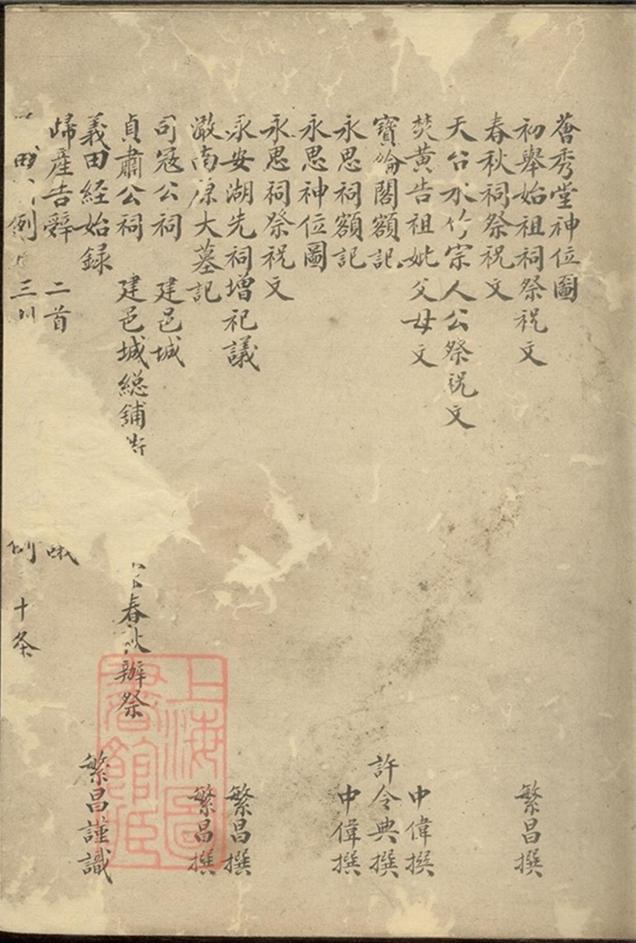 薈秀堂神位圖
初舉始祖祠祭祝文 繁昌撰
春秋祠祭祝文
天台水竹宗人公祭祝文
焚黃告祖妣父母文 中偉撰
寶綸閣額記 許令典撰
永思祠額記 中偉撰
永思神位圖
永思祠祭祝文
永安湖先祠增祀議 繁昌撰
澉南原大墓記 繁昌撰
司寇公祠 建邑城
貞肅公祠 建邑城総鋪 春秋辦祭
義田經始録 繁昌謹識
歸產告辭 二首
田 例 三 例 十条
上海圖書館藏